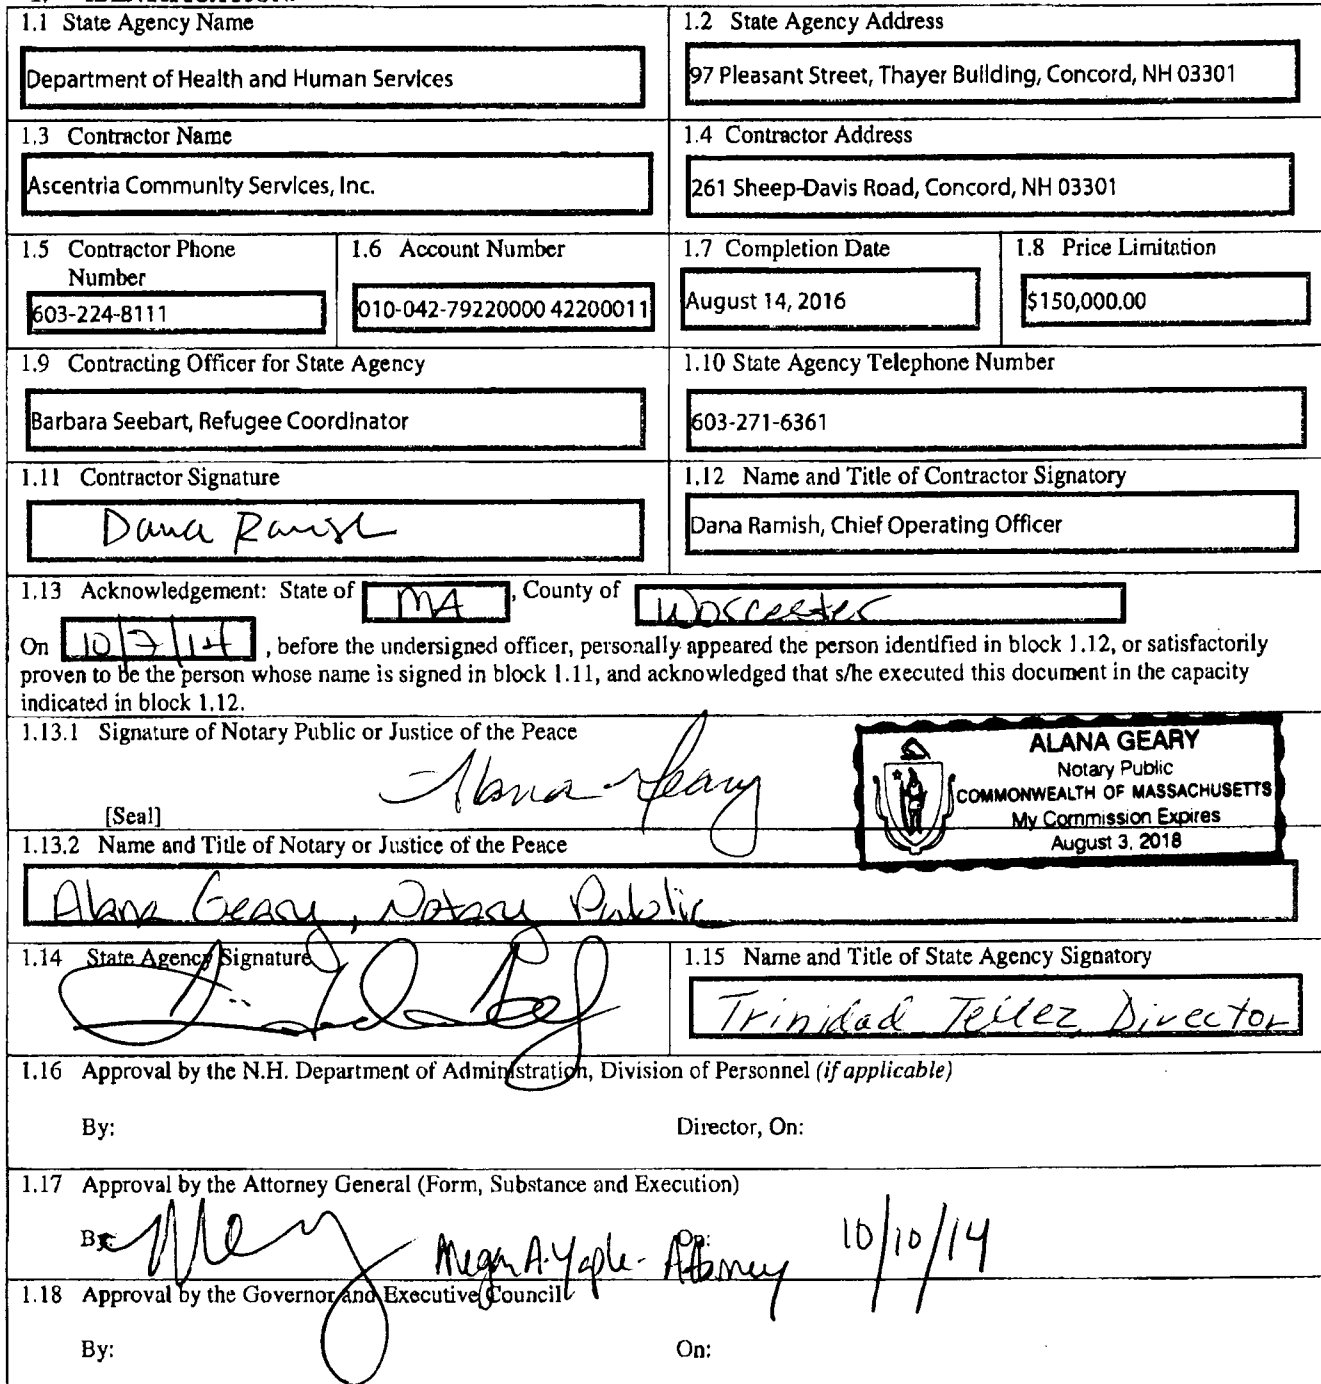 1.1 State Agency Name
Department of Health and Human Services
1.2 State Agency Address
97 Pleasant Street, Thayer Building, Concord, NH 03301
1.3 Contractor Name
Ascentria Community Services, Inc.
1.4 Contractor Address
261 Sheep-Davis Road, Concord, NH 03301
1.5 Contractor Phone
Number
603-224-8111
1.6 Account Number
010-042-79220000 42200011
1.7 Completion Date
August 14, 2016
1.8 Price Limitation
$150,000.00
1.9 Contracting Officer for State Agency
Barbara Seebart, Refugee Coordinator
1.10 State Agency Telephone Number
603-271-6361
1.11 Contractor Signature
Dana Ramish
1.12 Name and Title of Contractor Signatory
Dana Ramish, Chief Operating Officer
1.13 Acknowledgement: State of MA, County of Worcester
On 10/7/14, before the undersigned officer, personally appeared the person identified in block 1.12, or satisfactorily
proven to be the person whose name is signed in block 1.11, and acknowledged that s/he executed this document in the capacity
indicated in block 1.12.
1.13.1 Signature of Notary Public or Justice of the Peace
Alana Geary
[Seal]
ALANA GEARY
Notary Public
COMMONWEALTH OF MASSACHUSETTS
My Commission Expires
August 3, 2018
1.13.2 Name and Title of Notary or Justice of the Peace
Alana Geary, Notary Public
1.14 State Agency Signature
1.15 Name and Title of State Agency Signatory
Trinidad Tellez, Director
1.16 Approval by the N.H. Department of Administration, Division of Personnel (if applicable)
By: Director, On:
1.17 Approval by the Attorney General (Form, Substance and Execution)
By: Megan A. Yaple - Attorney On: 10/10/14
1.18 Approval by the Governor and Executive Council
By: On: